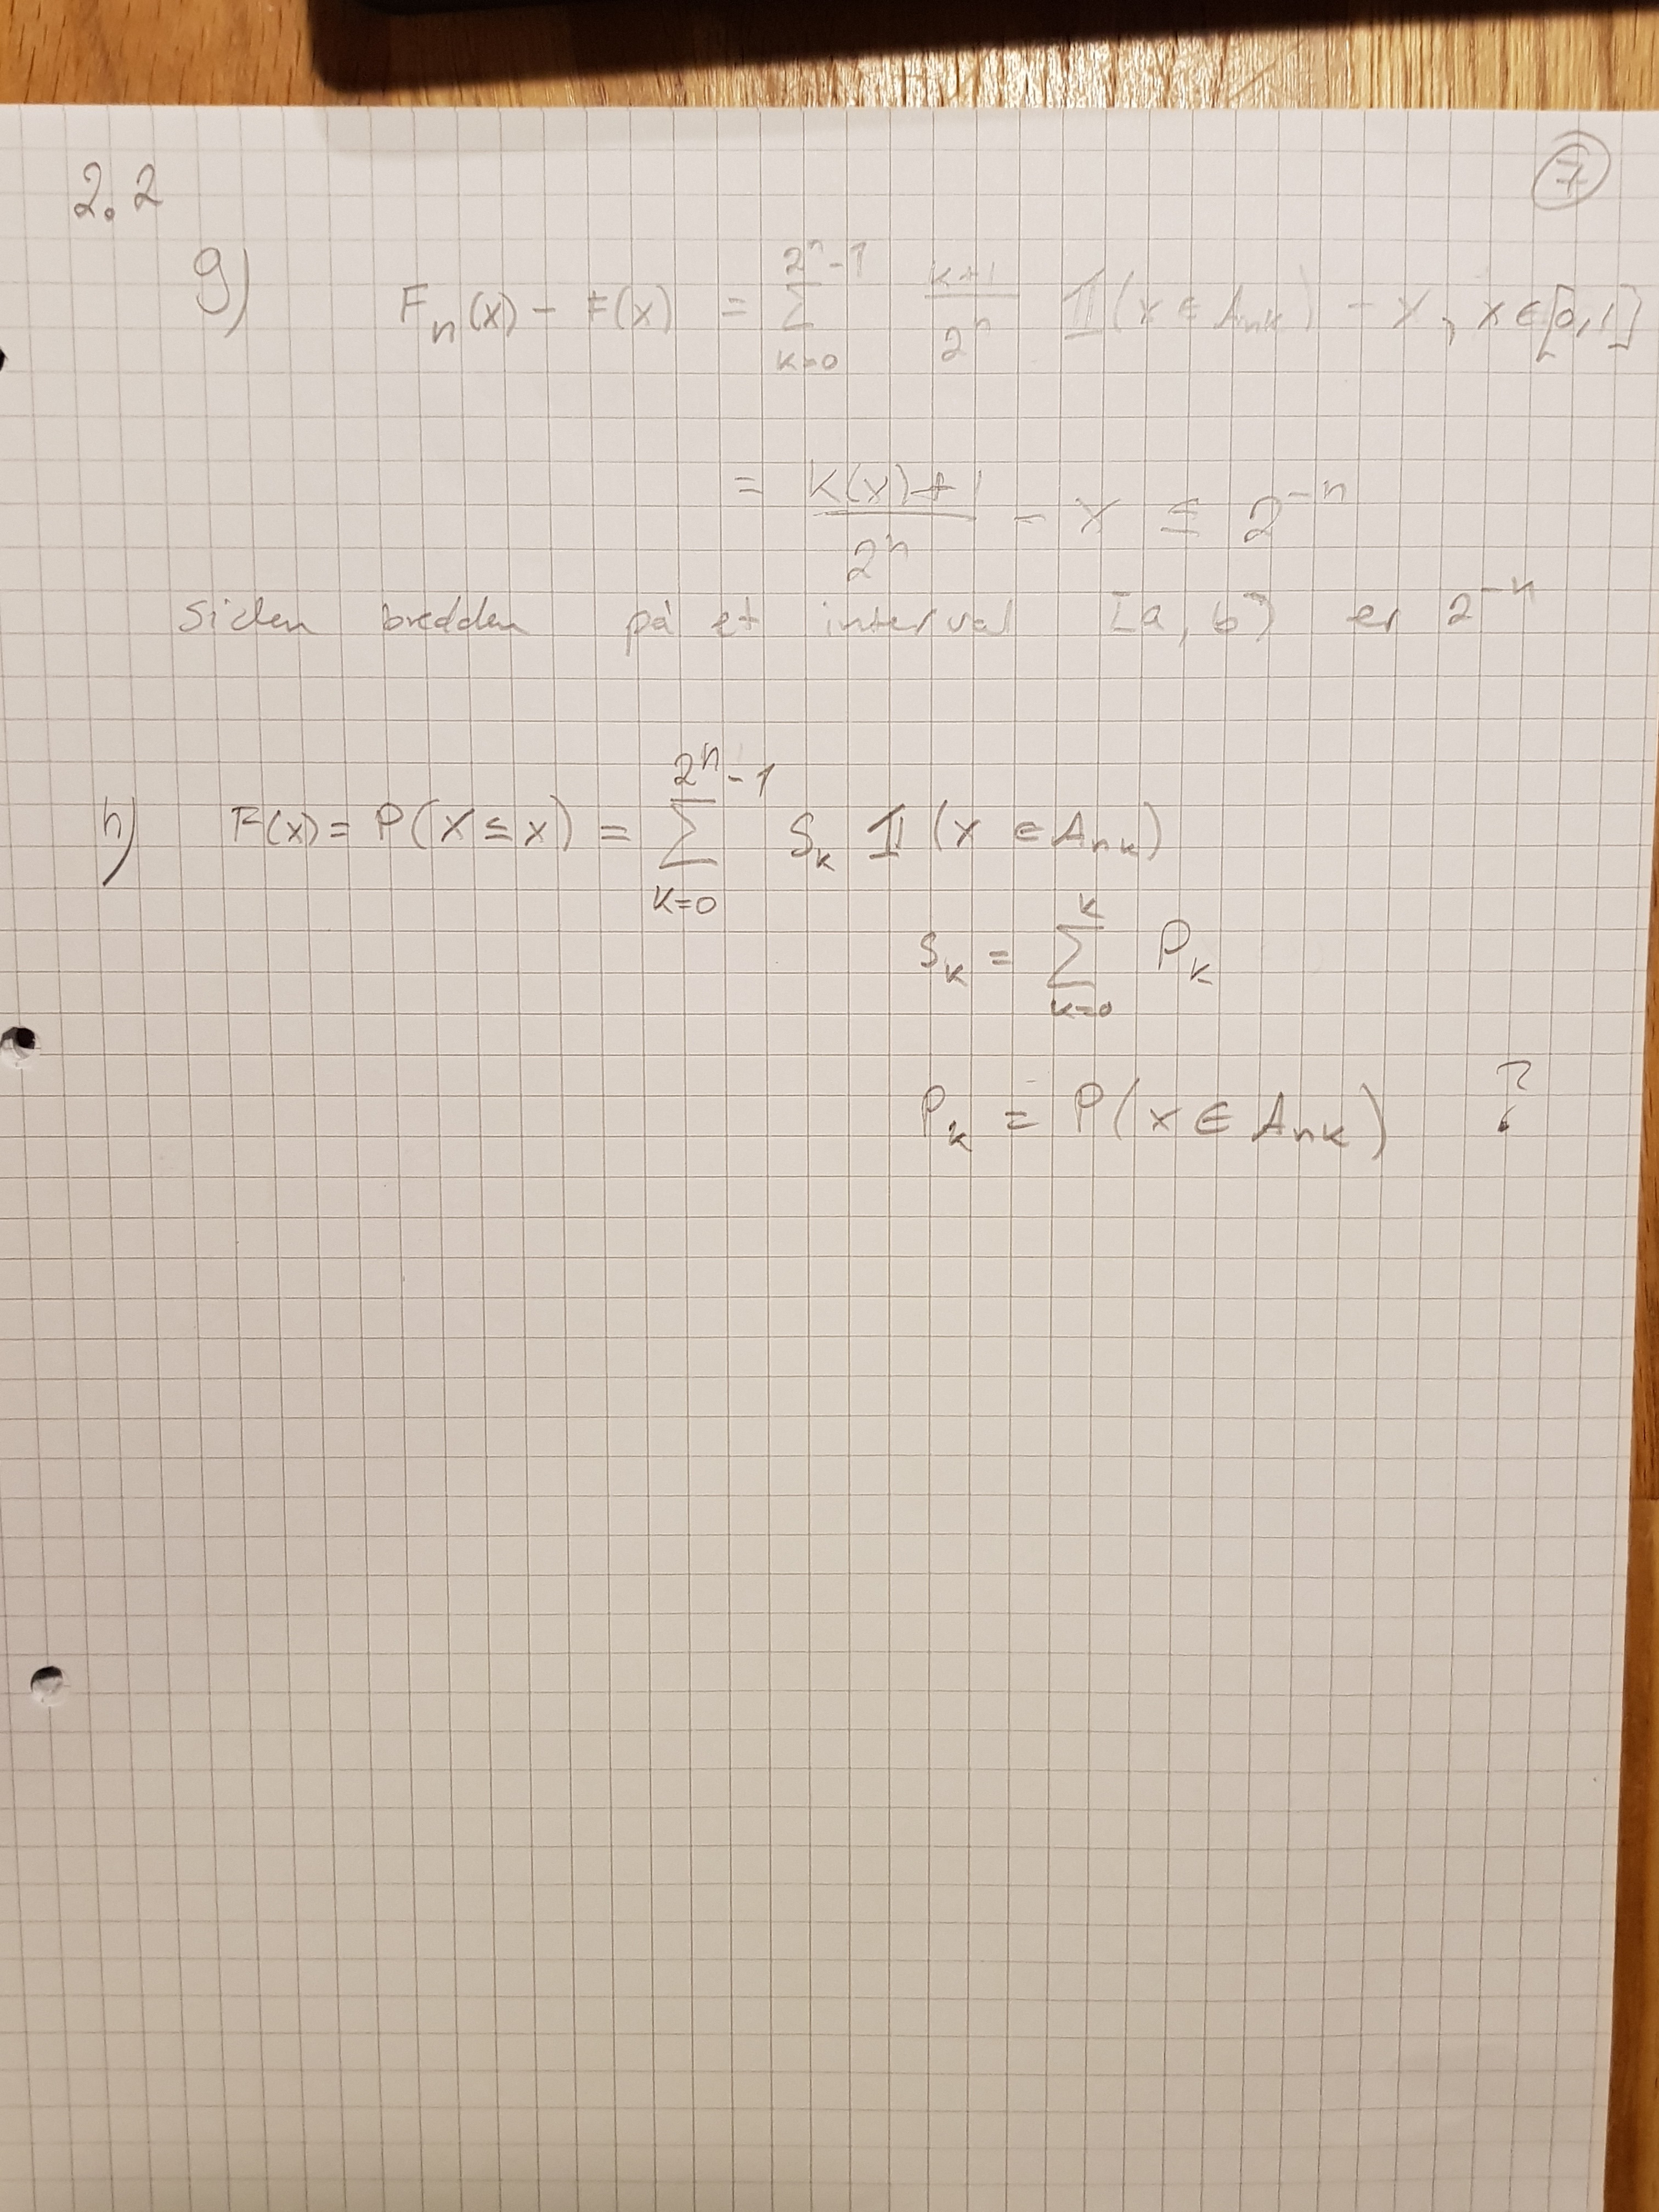 2.2
7
g) Fₙ(x) - F(x) = ∑_{k=0}^{2ⁿ-1} (k+1)/2ⁿ 𝟙(x ∈ Aₙₖ) - x, x ∈ [0,1]
= (k(x)+1)/2ⁿ - x ≤ 2⁻ⁿ
siden bredden på et interval [a, b) er 2⁻ⁿ
h) F(x) = P(X ≤ x) = ∑_{k=0}^{2ⁿ-1} Sₖ 𝟙(x ∈ Aₙₖ)
Sₖ = ∑_{k=0}^{k} Pₖ
Pₖ = P(x ∈ Aₙₖ) ?